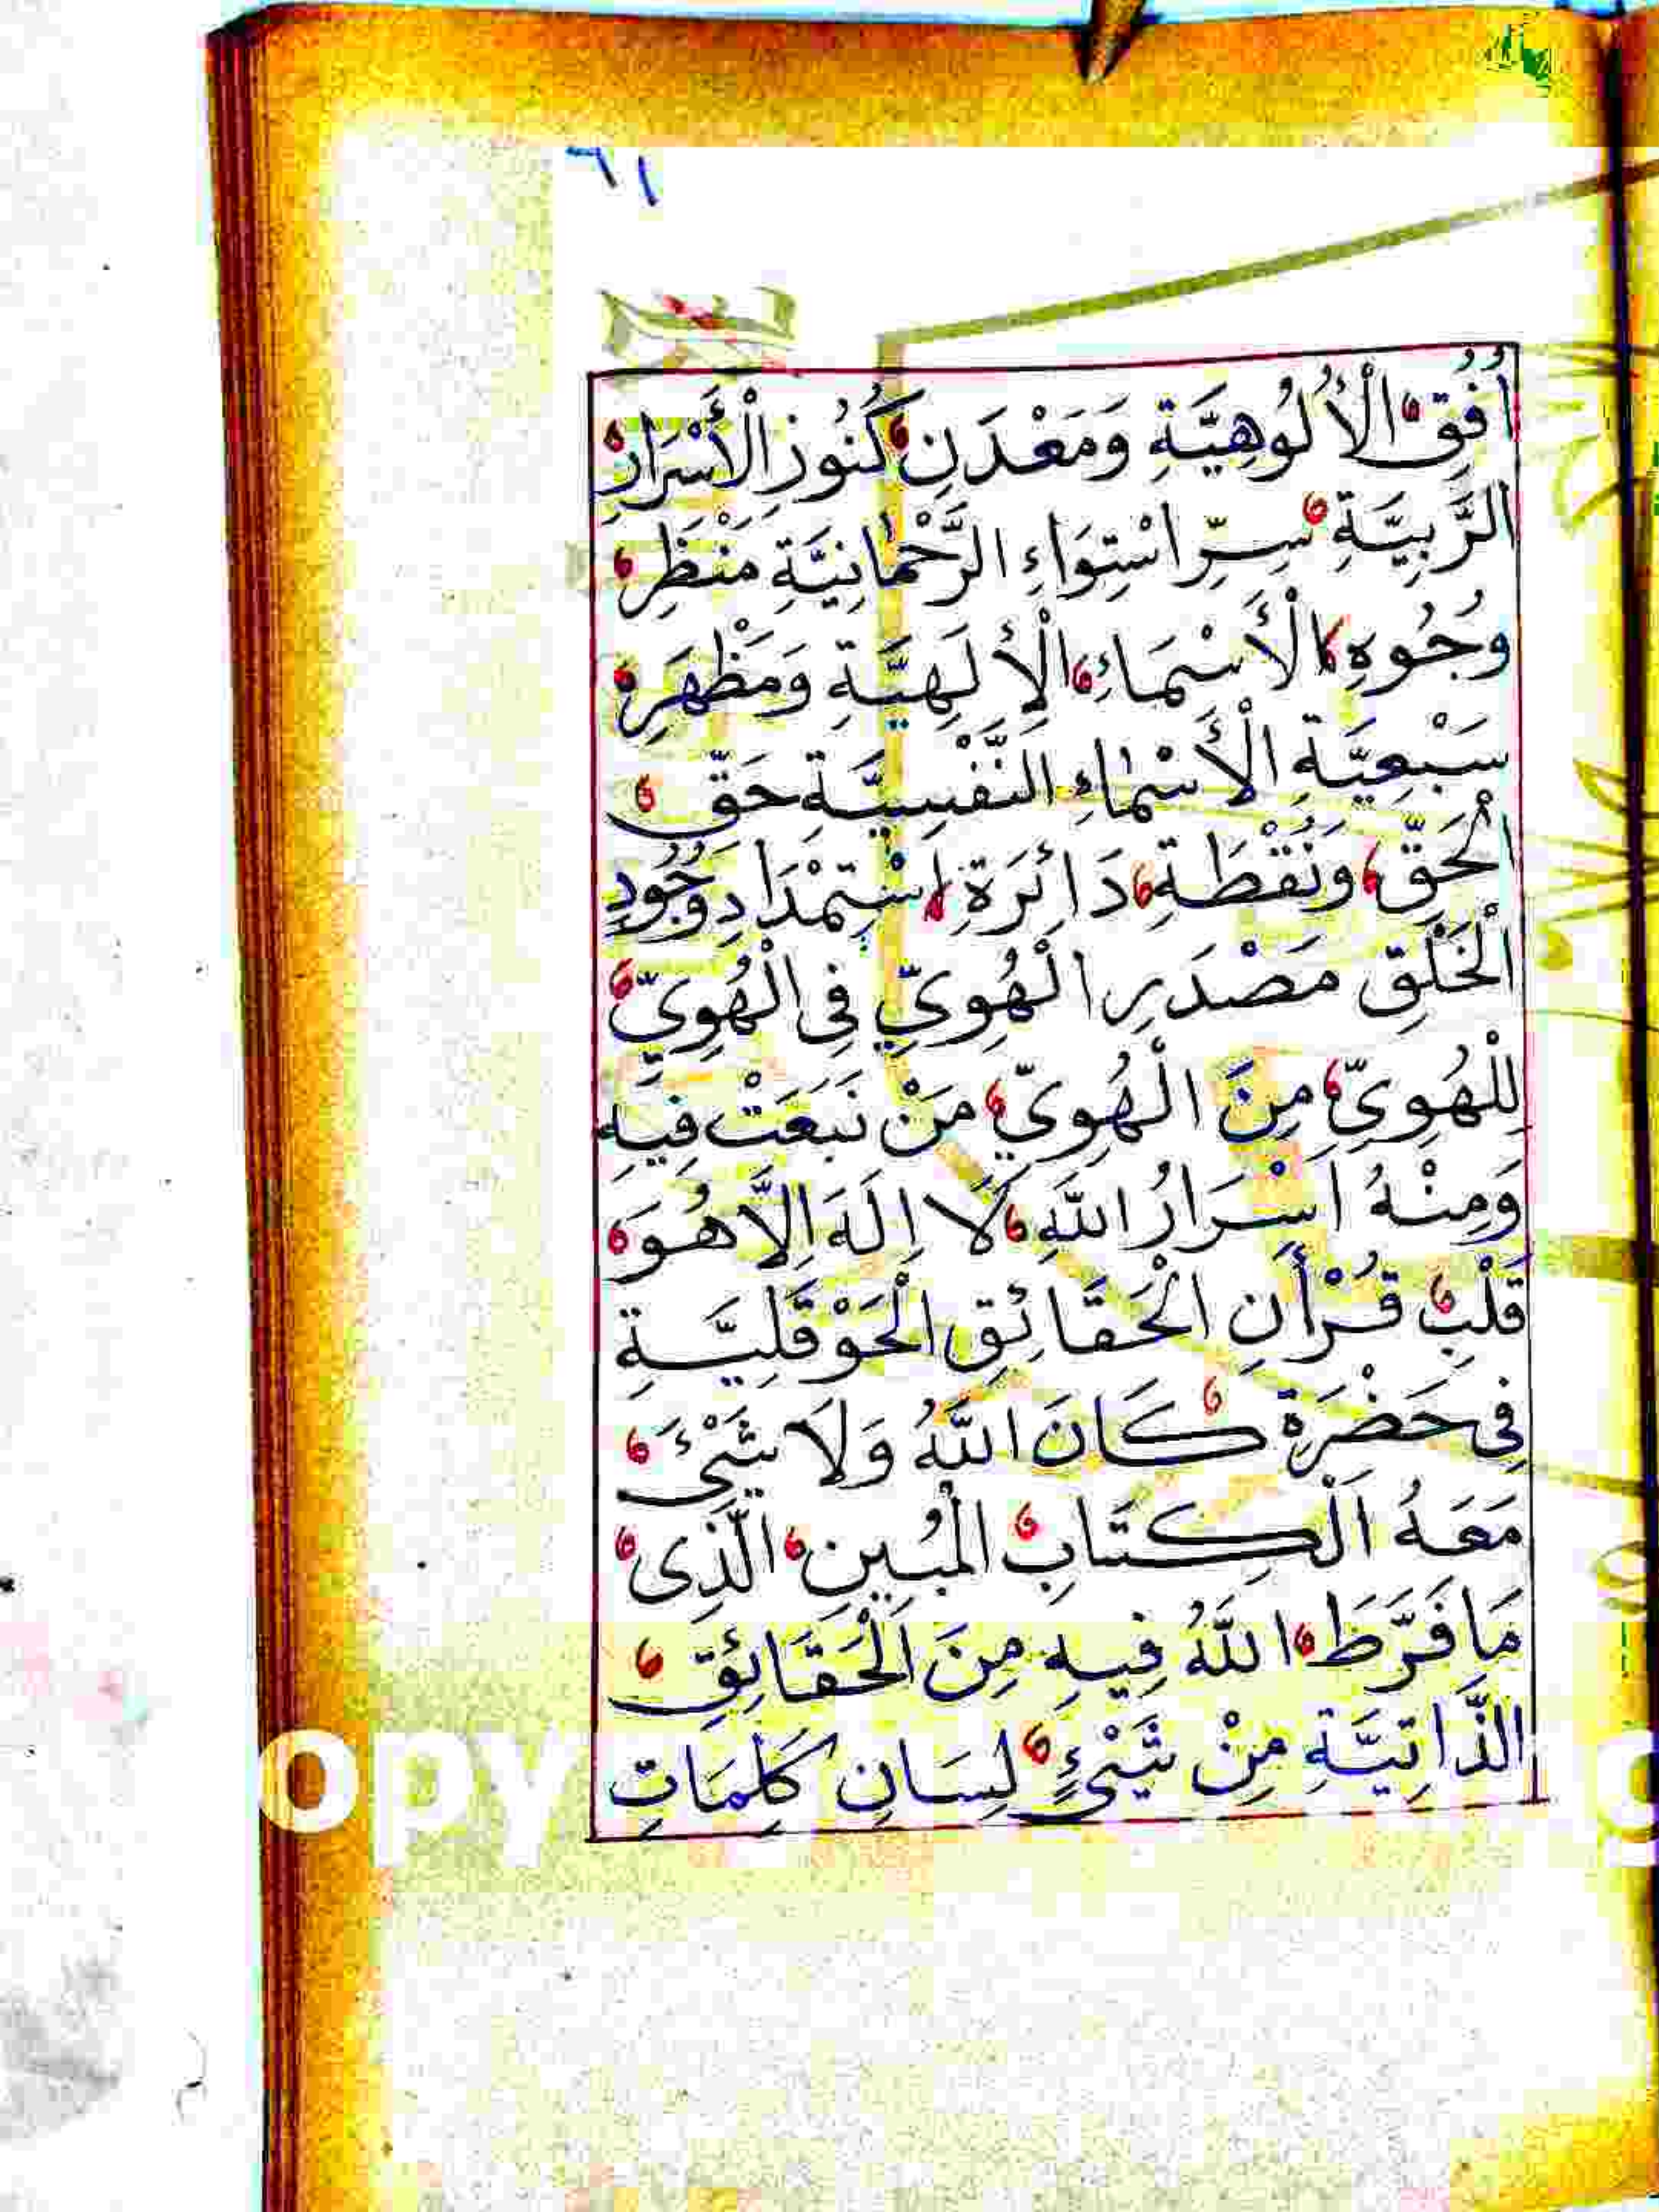 ٦١
أُفُقِ الْأُلُوهِيَّةِ وَمَعْدَنِ كُنُوزِ الْأَسْرَارِ
الرَّبِيَّةِ سِرِّ اسْتِوَاءِ الرَّحْمَانِيَّةِ مَنْظَرِ
وُجُوهِ الْأَسْمَاءِ الْإِلَهِيَّةِ وَمَظْهَرِ
سَبْعِيَّةِ الْأَسْمَاءِ النَّفْسِيَّةِ حَقِّ
الْحَقِّ وَنُقْطَةِ دَائِرَةِ اسْتِمْدَادِ وُجُودِ
الْخَلْقِ مَصْدَرِ الْهُوِيِّ فِي الْهُوِيِّ
لِلْهُوِيِّ مِنَ الْهُوِيِّ مَنْ نَبَعَتْ فِيهِ
وَمِنْهُ اَسْرَارُ اللَّهِ لَا اِلَهَ اِلَّا هُوَ
قَلْبِ قُرْأَنِ الْحَقَائِقِ الْحَوْقَلِيَّةِ
فِي حَضْرَةِ كَانَ اللَّهُ وَلَا شَيْءَ
مَعَهُ اَلْكِتَابِ الْمُبِينِ الَّذِى
مَا فَرَّطَ اللَّهُ فِيهِ مِنَ الْحَقَائِقِ
الذَّاتِيَّةِ مِنْ شَيْءٍ لِسَانِ كَلِمَاتِ
opy
g